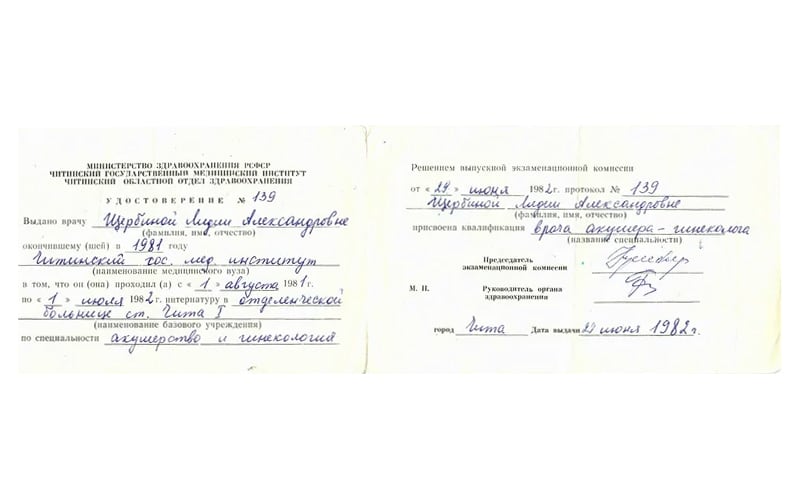 МИНИСТЕРСТВО ЗДРАВООХРАНЕНИЯ РСФСР
ЧИТИНСКИЙ ГОСУДАРСТВЕННЫЙ МЕДИЦИНСКИЙ ИНСТИТУТ
ЧИТИНСКИЙ ОБЛАСТНОЙ ОТДЕЛ ЗДРАВООХРАНЕНИЯ
УДОСТОВЕРЕНИЕ № 139
Выдано врачу Щербиной Лидии Александровне
(фамилия, имя, отчество)
окончившему (шей) в 1981 году
Читинский гос. мед. институт
(наименование медицинского вуза)
в том, что он (она) проходил (а) с «1» августа 1981 г.
по «1» июля 1982 г. интернатуру в отделенческой
больнице ст. Чита I
(наименование базового учреждения)
по специальности акушерство и гинекология
Решением выпускной экзаменационной комиссии
от «29» июня 1982 г. протокол № 139
Щербиной Лидии Александровне
(фамилия, имя, отчество)
присвоена квалификация врача акушера-гинеколога
(название специальности)
Председатель
экзаменационной комиссии
М. П. Руководитель органа
здравоохранения
город Чита Дата выдачи 29 июня 1982 г.